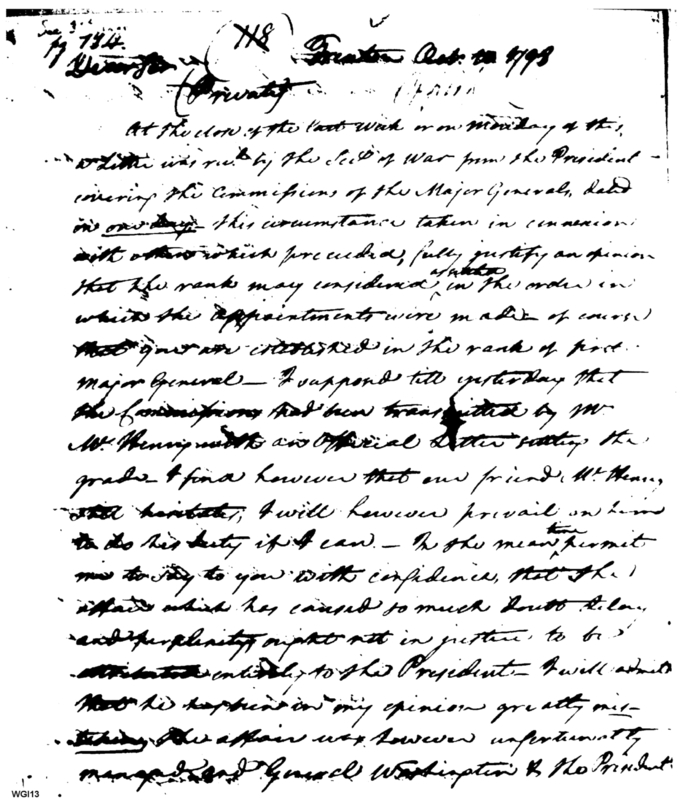 See 3d
pg 734.
118
Trenton Oct. 10 1798
Dear Sir
(Private)
At the close of the last week or on Monday of this,
a Letter was recd. by the Secy of War from the President
covering the Commissions of the Major Generals, dated
in one day – this circumstance taken in connexion
with others which preceeded, fully justify an opinion
that the rank may considered as settled in the order in
which the appointments were made – of course
that you are established in the rank of first
major General – I supposed till yesterday that
the Commissions had been transmitted by Mr
McHenry with an Official Letter settling the
grade – I find however that our friend McHenry
still hesitates, I will however prevail on him
to do his duty if I can. – In the mean time permit
me to say to you with confidence, that the
affair which has caused so much doubt delay
and perplexity ought not in justice to be
attributed entirely to the President – I will admit
that he has been in my opinion greatly mis–
taken, The affair was however unfortunately
managed and General Washington & the President
WGI13